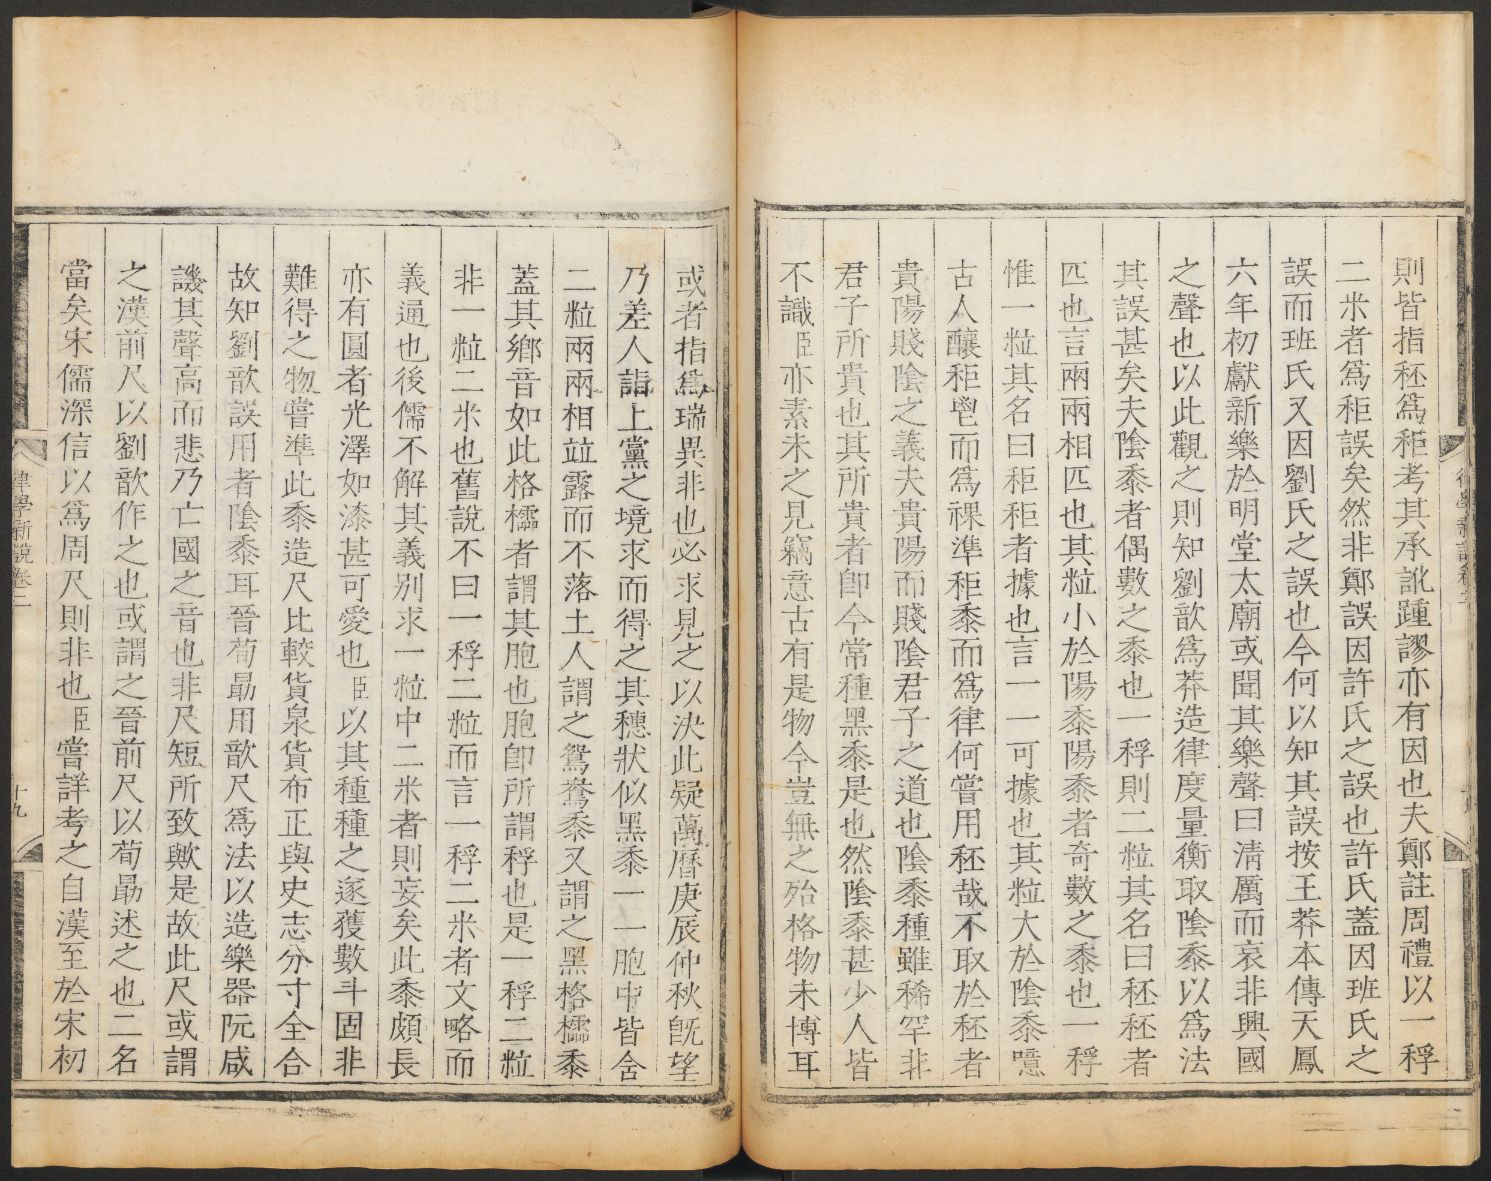 則皆指秠爲秬考其承訛踵謬亦有因也夫鄭註周禮以一稃
二米者爲秬誤矣然非鄭誤因許氏之誤也許氏蓋因班氏之
誤而班氏又因劉氏之誤也今何以知其誤按王莽本傳天鳳
六年初獻新樂於明堂太廟或聞其樂聲曰清厲而哀非興國
之聲也以此觀之則知劉歆爲莽造律度量衡取陰黍以爲法
其誤甚矣夫陰黍者偶數之黍也一稃則二粒其名曰秠秠者
匹也言兩兩相匹也其粒小於陽黍陽黍者奇數之黍也一稃
惟一粒其名曰秬秬者據也言一一可據也其粒大於陰黍噫
古人釀秬鬯而爲祼準秬黍而爲律何嘗用秠哉不取於秠者
貴陽賤陰之義夫貴陽而賤陰君子之道也陰黍種雖稀罕非
君子所貴也其所貴者卽今常種黑黍是也然陰黍甚少人皆
不識臣亦素未之見竊意古有是物今豈無之殆格物未博耳
或者指爲瑞異非也必求見之以決此疑萬曆庚辰仲秋旣望
乃差人詣上黨之境求而得之其穗狀似黑黍一一胞中皆含
二粒兩兩相竝露而不落土人謂之鴛鴦黍又謂之黑格檽黍
蓋其鄉音如此格檽者謂其胞也胞卽所謂稃也是一稃二粒
非一粒二米也舊說不曰一稃二粒而言一稃二米者文略而
義逼也後儒不解其義別求一粒中二米者則妄矣此黍頗長
亦有圓者光澤如漆甚可愛也臣以其種種之逐獲數斗固非
難得之物嘗準此黍造尺比較貨泉貨布正與史志分寸全合
故知劉歆誤用者陰黍耳晉荀勗用歆尺爲法以造樂器阮咸
譏其聲高而悲乃亡國之音也非尺短所致歟是故此尺或謂
之漢前尺以劉歆作之也或謂之晉前尺以荀勗述之也二名
當矣宋儒深信以爲周尺則非也臣嘗詳考之自漢至於宋初
律學新說卷二
十九